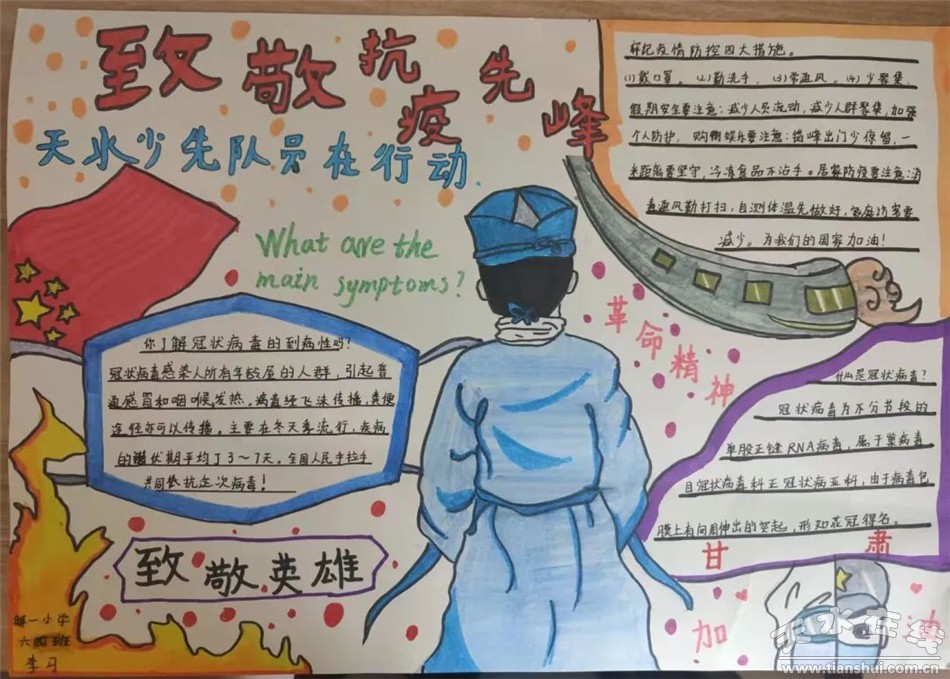 致敬抗疫先峰
天水少先队员在行动
What are the
main symptoms?
你了解冠状病毒的到病性吗?
冠状病毒感染人所有年龄层的人群,引起普
通感冒和咽喉发热。病毒经飞沫传播,粪便
途径亦可以传播。主要在冬天季流行,疾病
的潜伏期平均了3～7天。全国人民手拉手
共同抵抗这次病毒!
致敬英雄
一小学
六四班
李习
牢记疫情防控四大措施。
(1)戴口罩。(2)勤洗手,(3)常通风。(4)少聚集,
假期安全要注意:减少人员流动,减少人群聚集,加强
个人防护,购物娱乐要注意:错峰出门少停留,一
米距离要坚守,冷冻食品不沾手。居家防疫要注意:消
毒通风勤打扫,自测体温先做好,家庭访客要
减少。为我们的国家加油!
革命精神
什么是冠状病毒?
冠状病毒为不分节段的
单股正链RNA病毒,属于巢病毒
目冠状病毒科正冠状病亚科,由于病毒包
膜上有向周伸出的突起,形如花冠得名。
甘肃
加油
天水在线
www.tianshui.com.cn